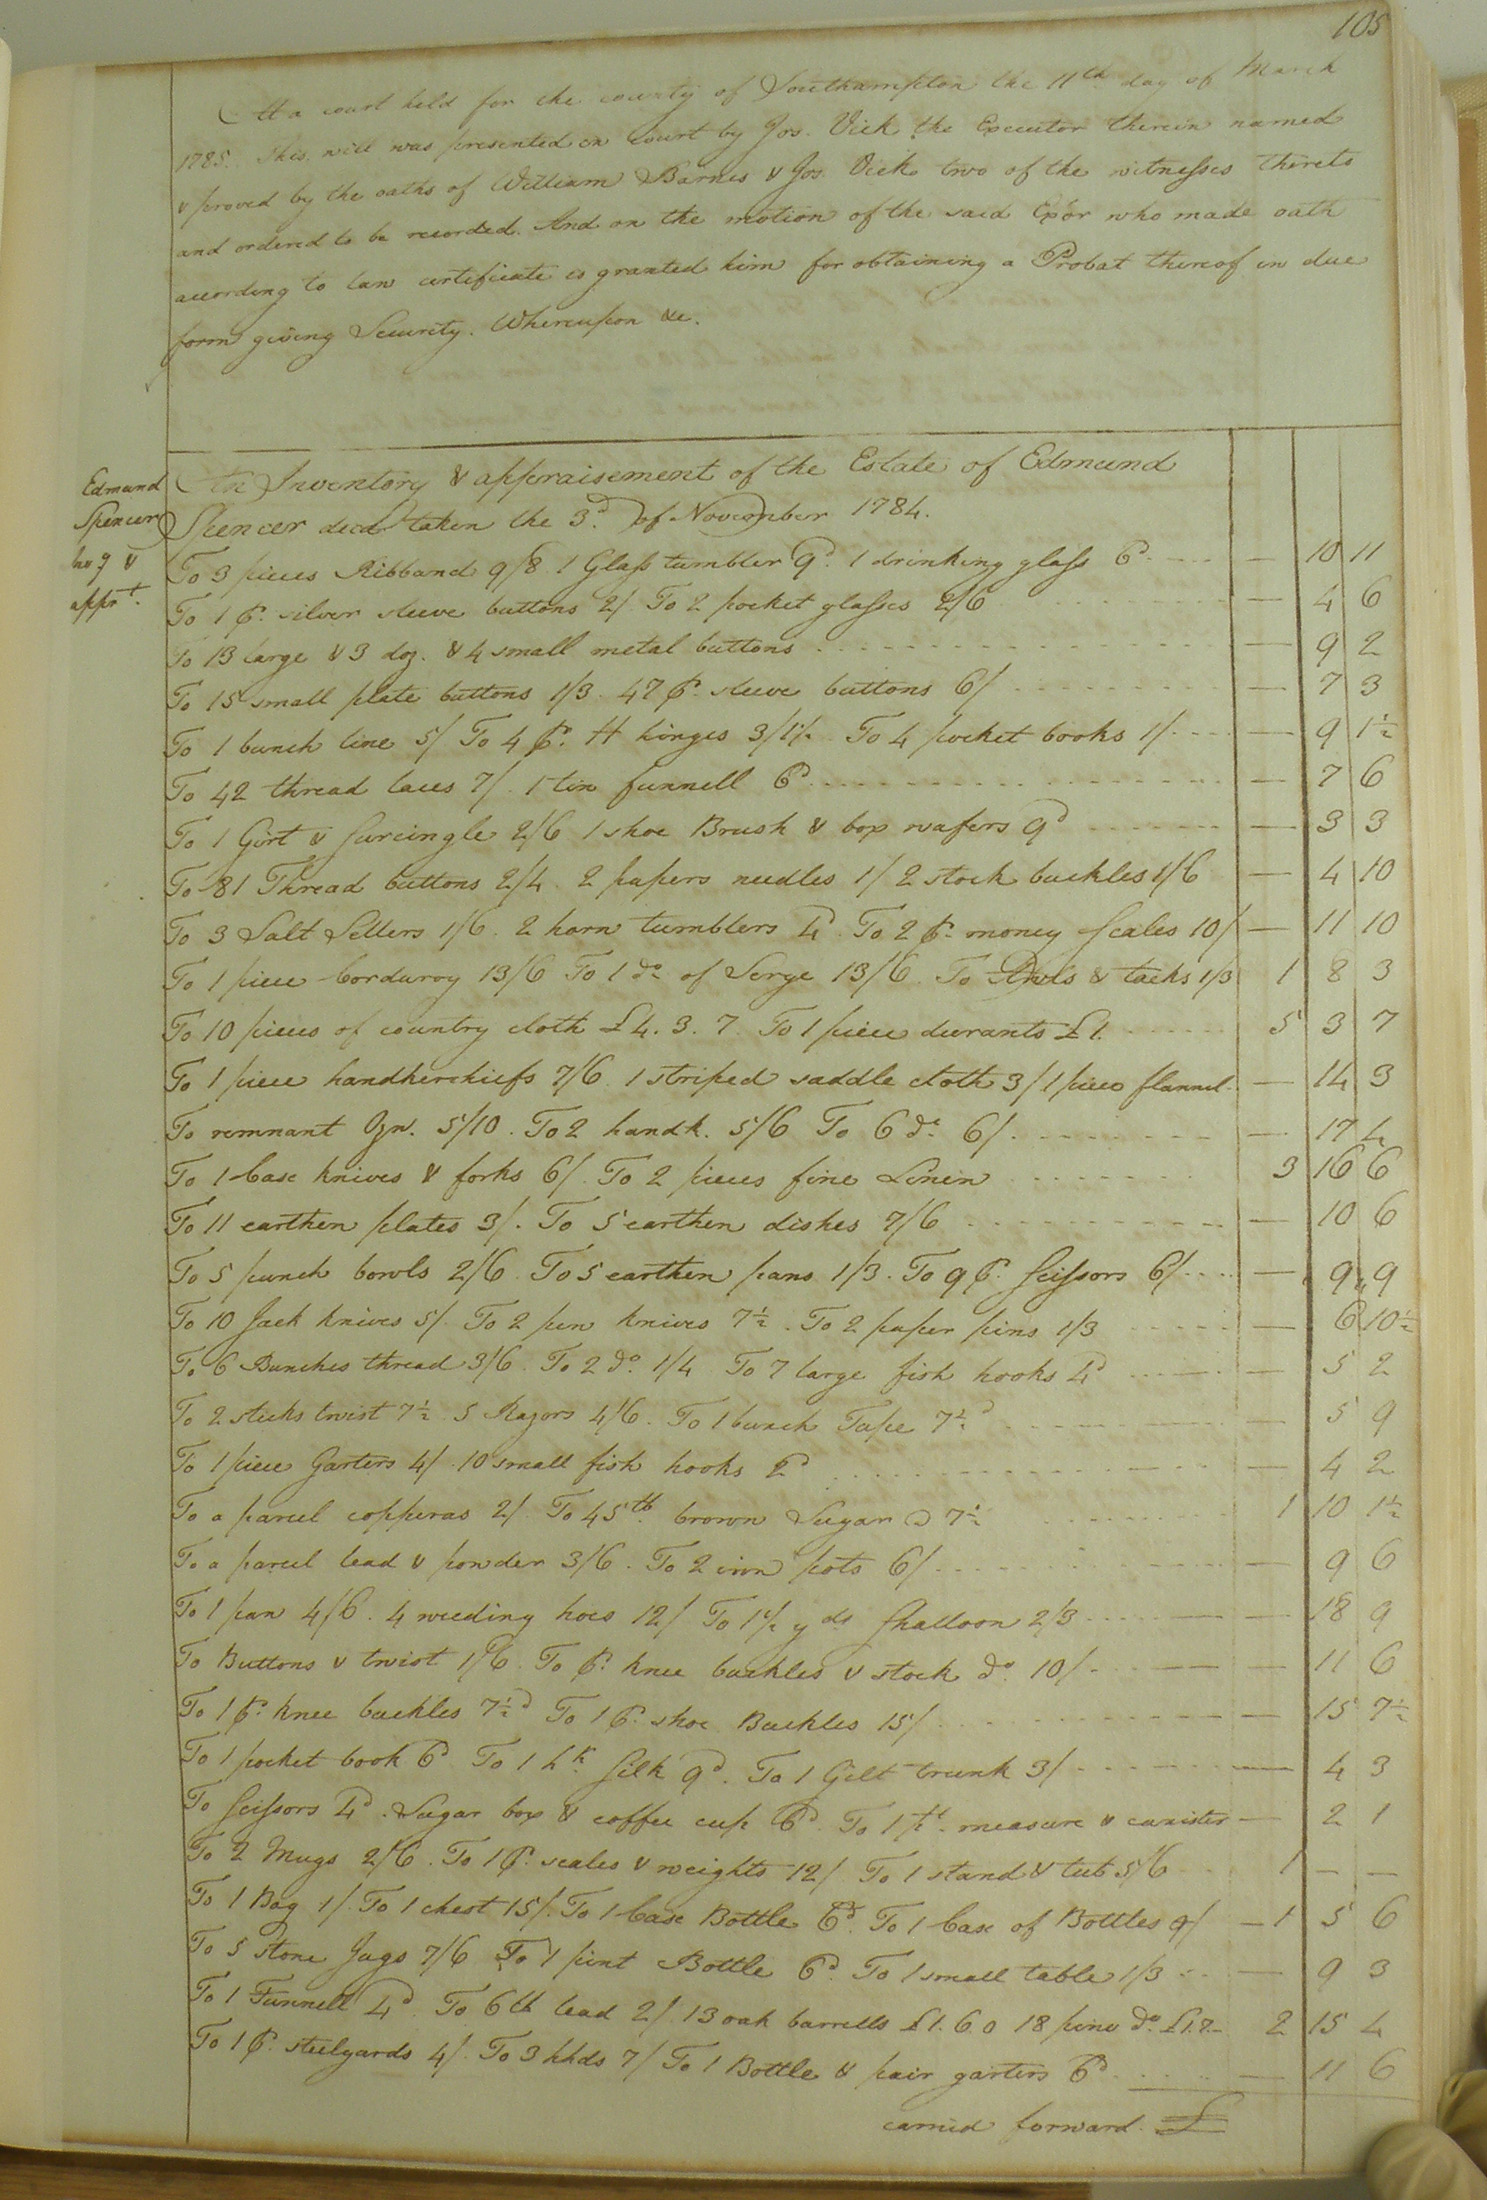 105
At a court held for the county of Southampton the 11th day of March
1785. This will was presented in court by Jos. Vick the Executor therein named
& proved by the oaths of William Barnes & Jos. Vick two of the witnesses thereto
and ordered to be recorded. And on the motion of the said Exor who made oath
according to law certificate is granted him for obtaining a Probat thereof in due
form giving Security. Whereupon &c.
Edmund
Spencer
Inv &
apprt.
An Inventory & appraisement of the Estate of Edmund
Spencer decd taken the 3d. of November 1784.
To 3 pieces Ribband 9/8 1 Glass tumbler 9d. 1 drinking glass 6d — 10 11
To 1 pr. silver sleeve buttons 2/ To 2 pocket glasses 2/6 — 4 6
To 13 large & 3 doz. & 4 small metal buttons — 9 2
To 15 small plate buttons 1/3 47 pr. sleeve buttons 6/ — 7 3
To 1 bunch line 5/ To 4 pr. H hinges 3/1½ To 4 pocket books 1/ — 9 1½
To 42 thread laces 7/. 1 tin funnell 6d — 7 6
To 1 Girt & Surcingle 2/6 1 shoe Brush & box wafers 9d — 3 3
To 81 Thread buttons 2/4. 2 papers needles 1/ 2 stock buckles 1/6 — 4 10
To 3 Salt Sellers 1/6. 2 horn tumblers 4d. To 2 pr. money Scales 10/ — 11 10
To 1 piece Corduroy 13/6 To 1 do. of Serge 13/6. To Awls & tacks 1/3 1 8 3
To 10 pieces of country cloth £4. 3. 7. To 1 piece durants £1. 5 3 7
To 1 piece handkerchiefs 7/6. 1 striped saddle cloth 3/ 1 piece flannel — 14 3
To remnant Ozn. 5/10. To 2 handk. 5/6 To 6 do. 6/. — 17 4
To 1 Case knives & forks 6/. To 2 pieces fine Linen 3 16 6
To 11 earthen plates 3/. To 5 earthen dishes 7/6 — 10 6
To 5 punch bowls 2/6. To 5 earthen pans 1/3. To 9 pr. Scissors 6/ — 9 9
To 10 Jack knives 5/. To 2 pen knives 7½. To 2 paper pins 1/3 — 6 10½
To 6 Bunches thread 3/6. To 2 do. 1/4 To 7 large fish hooks 4d — 5 2
To 2 sticks twist 7½ 5 Razors 4/6. To 1 bunch Tape 7½d — 5 9
To 1 piece Garters 4/. 10 small fish hooks 2d — 4 2
To a parcel copperas 2/. To 45lb. brown Sugar @ 7½ 1 10 1½
To a parcel lead & powder 3/6. To 2 iron pots 6/ — 9 6
To 1 pan 4/6. 4 weeding hoes 12/ To 1½ yds Shalloon 2/3 — 18 9
To Buttons & twist 1/6. To pr. knee buckles & stock do. 10/ — 11 6
To 1 pr. knee buckles 7½d To 1 pr. shoe Buckles 15/ — 15 7½
To 1 pocket book 6d To 1 hk. Silk 9d. To 1 Gilt trunk 3/ — 4 3
To Scissors 4d. Sugar box & coffee cup 6d. To 1 pt. measure & canister — 2 1
To 2 Mugs 2/6. To 1 pr. scales & weights 12/ To 1 stand & tub 5/6 1 — —
To 1 Bag 1/. To 1 chest 15/. To 1 Case Bottle 6d. To 1 Case of Bottles 9/ — 1 5 6
To 5 stone Jugs 7/6 To 1 pint Bottle 6d. To 1 small table 1/3 — 9 3
To 1 Funnell 4d. To 6lb lead 2/. 13 oak barrells £1. 6. 0 18 pine do. £1.7.— 2 15 4
To 1 pr. steelyards 4/. To 3 hhds 7/ To 1 Bottle & pair garters 6d. — 11 6
carried forward £